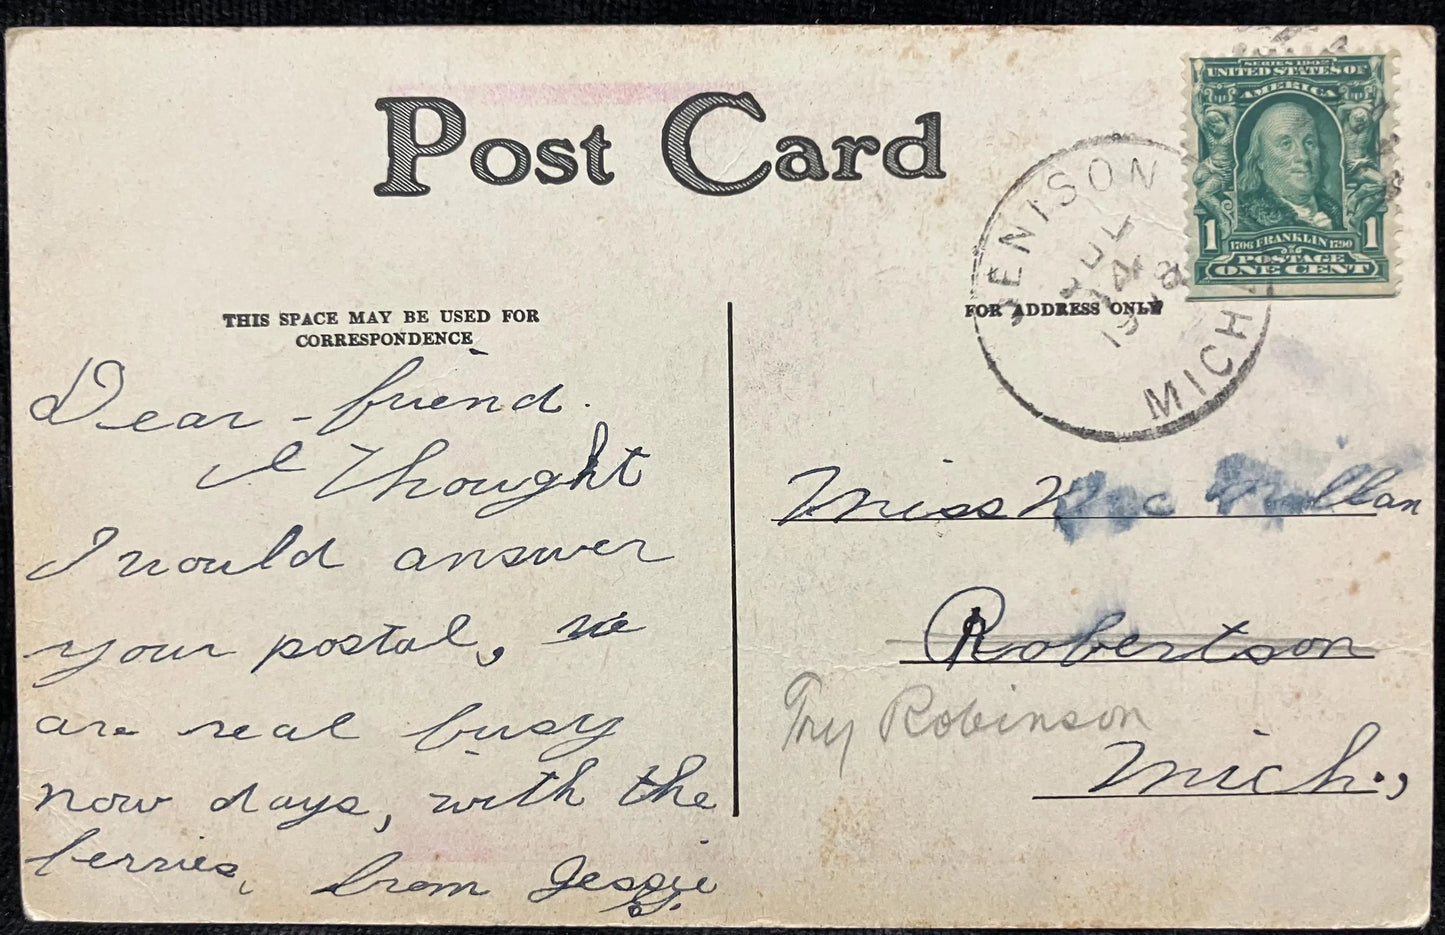 Post Card
THIS SPACE MAY BE USED FOR
CORRESPONDENCE
Dear - friend.
I thought
I would answer
your postal, we
are real busy
now days, with the
berries, from Jessie
G.
FOR ADDRESS ONLY
JENISON
JUL
14
19
MICH
SERIES 1902
UNITED STATES OF
AMERICA
1 1706 FRANKLIN 1790 1
POSTAGE
ONE CENT
Miss Mac Millan
Robertson
Try Robinson
Mich.,